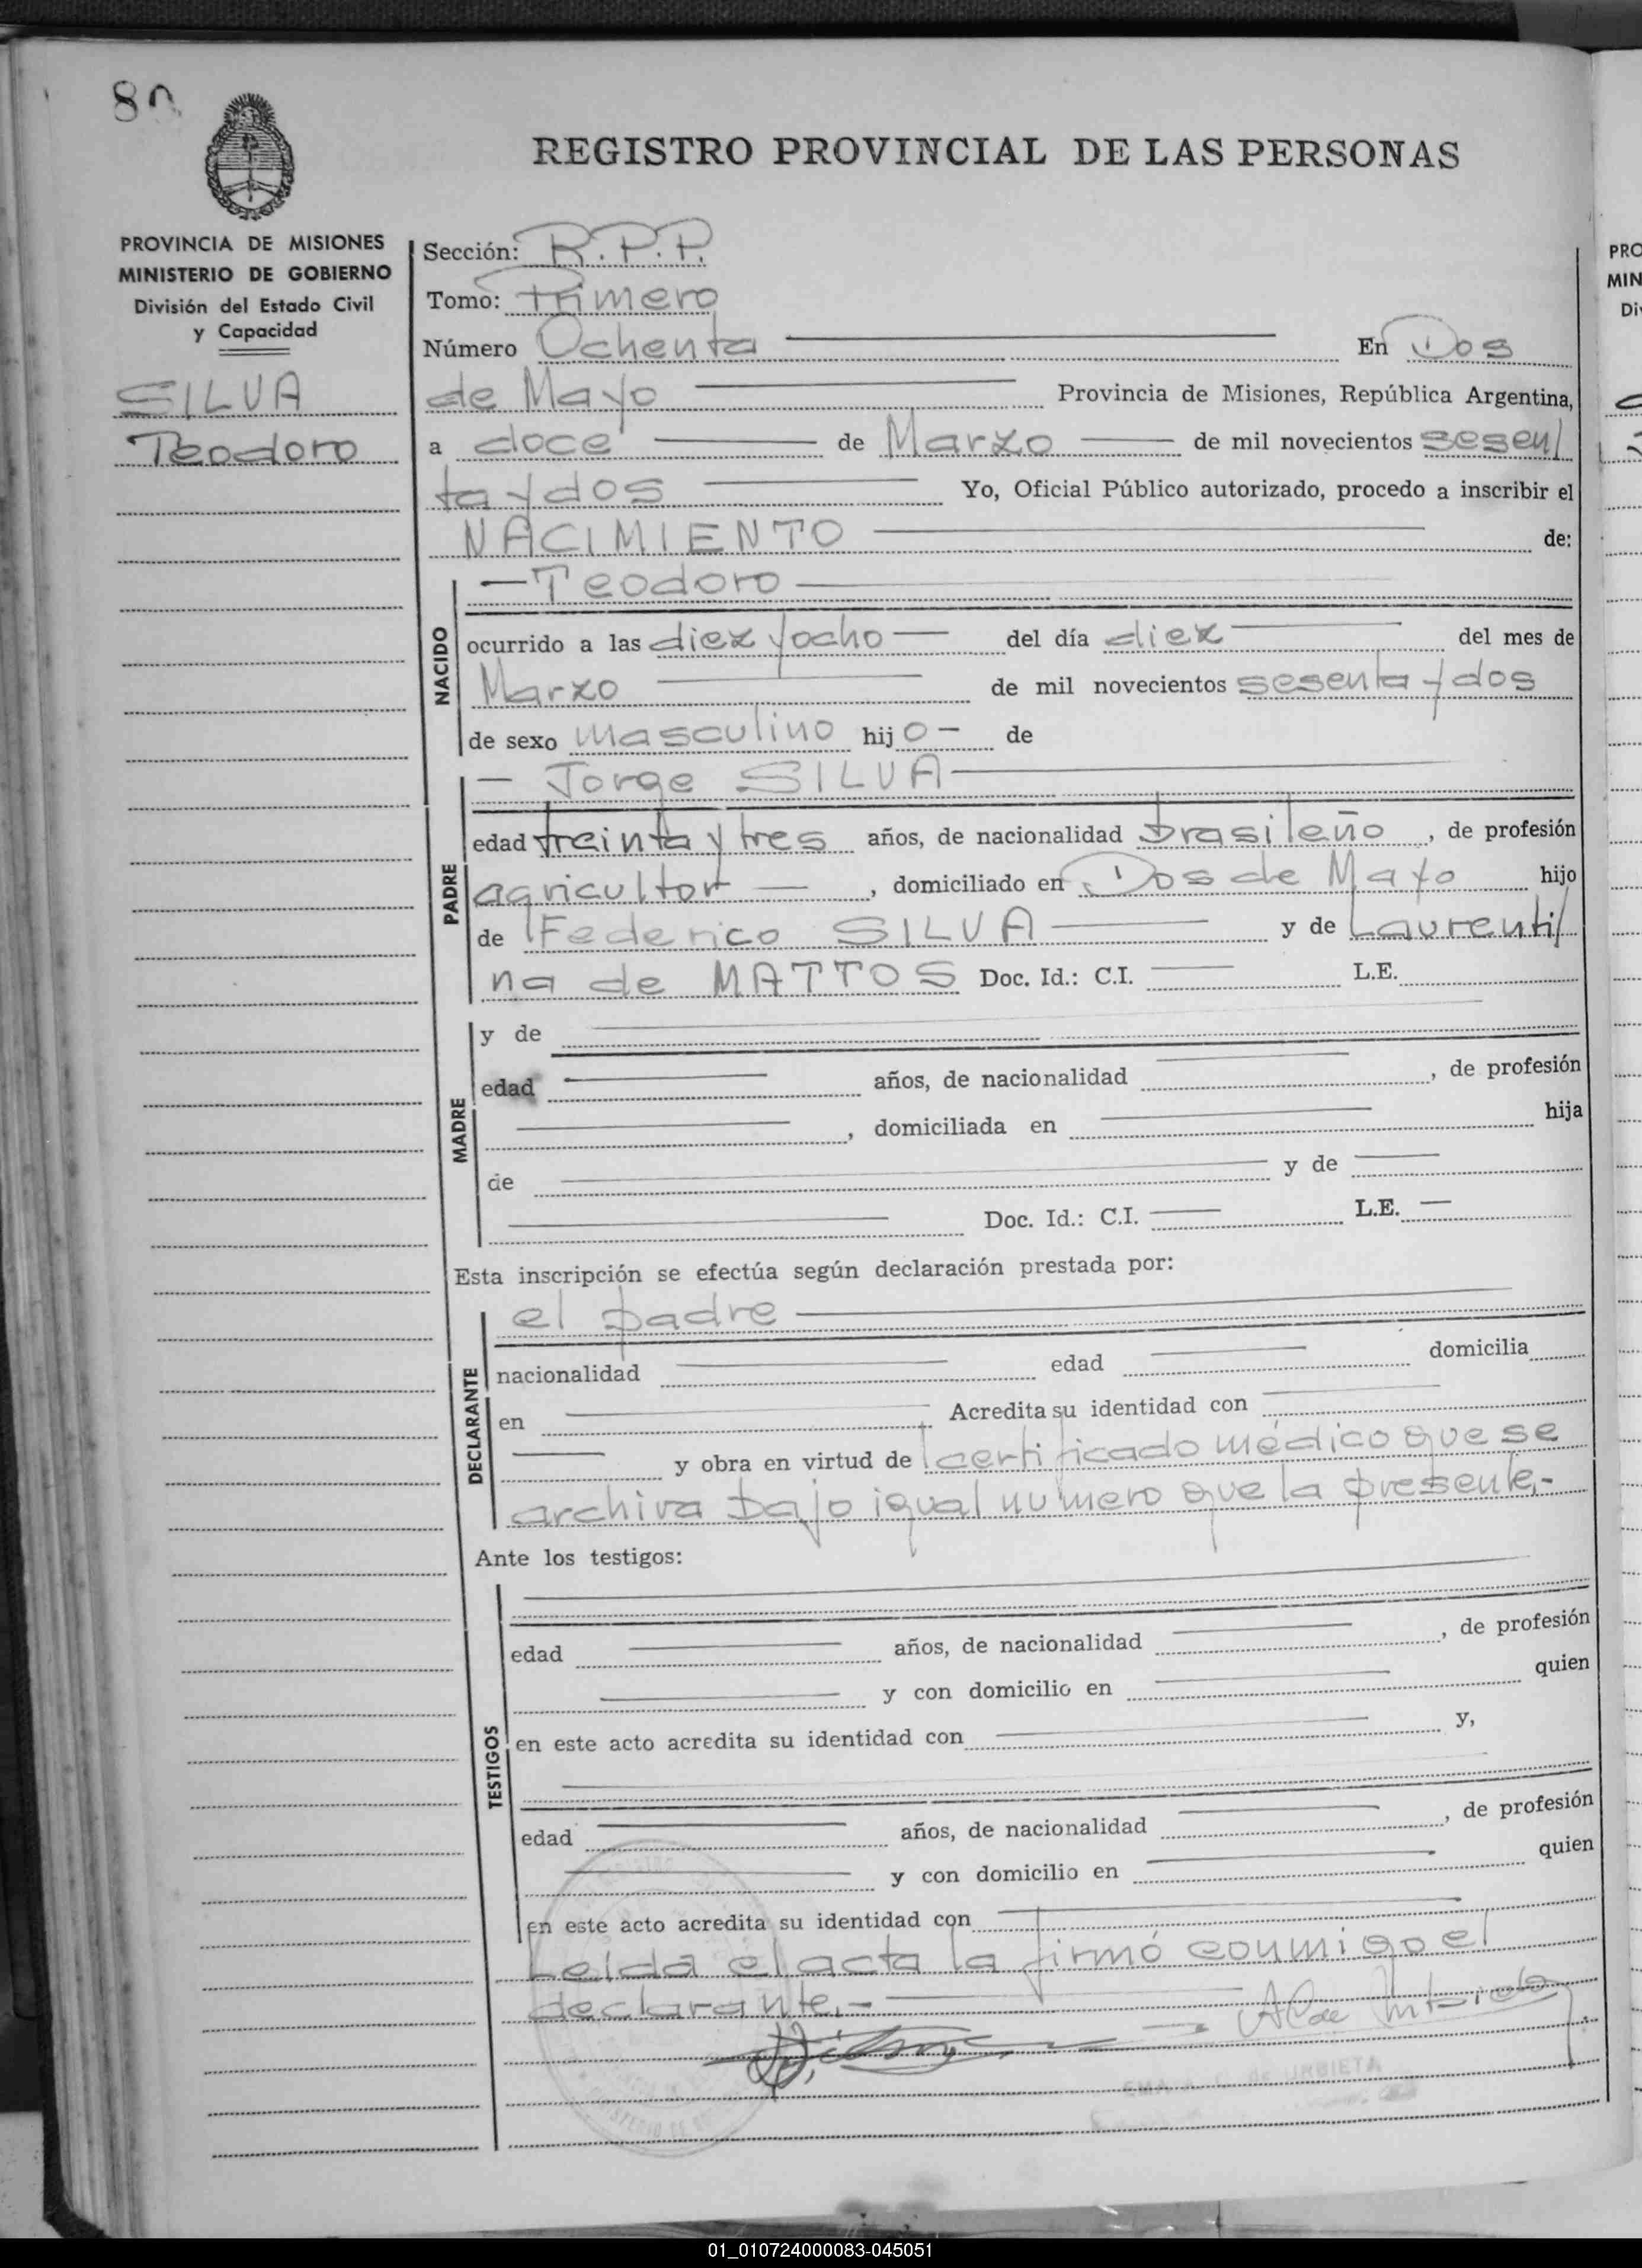 80
REGISTRO PROVINCIAL DE LAS PERSONAS
PROVINCIA DE MISIONES
MINISTERIO DE GOBIERNO
División del Estado Civil
y Capacidad
SILVA
Teodoro
Sección: R.P.P.
Tomo: Primero
Número Ochenta En Dos
de Mayo Provincia de Misiones, República Argentina,
a doce de Marzo de mil novecientos sesen
ta y dos Yo, Oficial Público autorizado, procedo a inscribir el
NACIMIENTO de:
NACIDO
— Teodoro
ocurrido a las diez y ocho — del día diez del mes de
Marzo de mil novecientos sesenta y dos
de sexo masculino hijo — de
PADRE
— Jorge SILVA —
edad treinta y tres años, de nacionalidad brasileño, de profesión
agricultor —, domiciliado en Dos de Mayo hijo
de Federico SILVA — y de Laurenti
na de MATTOS Doc. Id.: C.I. — L.E.
MADRE
y de
edad años, de nacionalidad , de profesión
, domiciliada en hija
de y de
Doc. Id.: C.I. — L.E. —
Esta inscripción se efectúa según declaración prestada por:
DECLARANTE
el padre
nacionalidad edad domicilia
en Acredita su identidad con
y obra en virtud de certificado médico que se
archiva bajo igual numero que la presente.-
Ante los testigos:
TESTIGOS
edad años, de nacionalidad , de profesión
y con domicilio en quien
en este acto acredita su identidad con y,
edad años, de nacionalidad , de profesión
y con domicilio en quien
en este acto acredita su identidad con
Leída el acta la firmó conmigo el
declarante.-
de URBIETA
PRO
MIN
Di
01_010724000083-045051